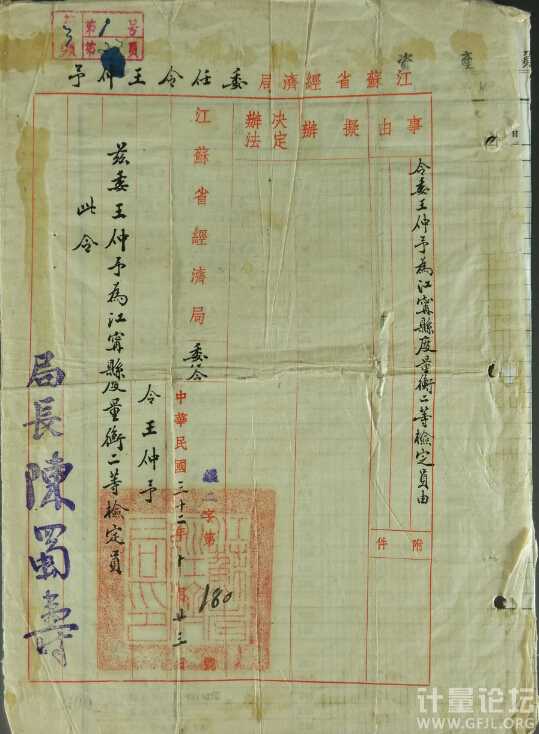 江蘇省經濟局委任令王仲予
事由
擬辦
决定辦法
令委王仲予為江甯縣度量衡二等檢定員由
附件
江蘇省經濟局委令
經二字第180號
中華民國三十二年十月廿三日
令王仲予
茲委王仲予為江甯縣度量衡二等檢定員
此令
局長陳蜀壽
计量论坛
WWW.GFJL.ORG